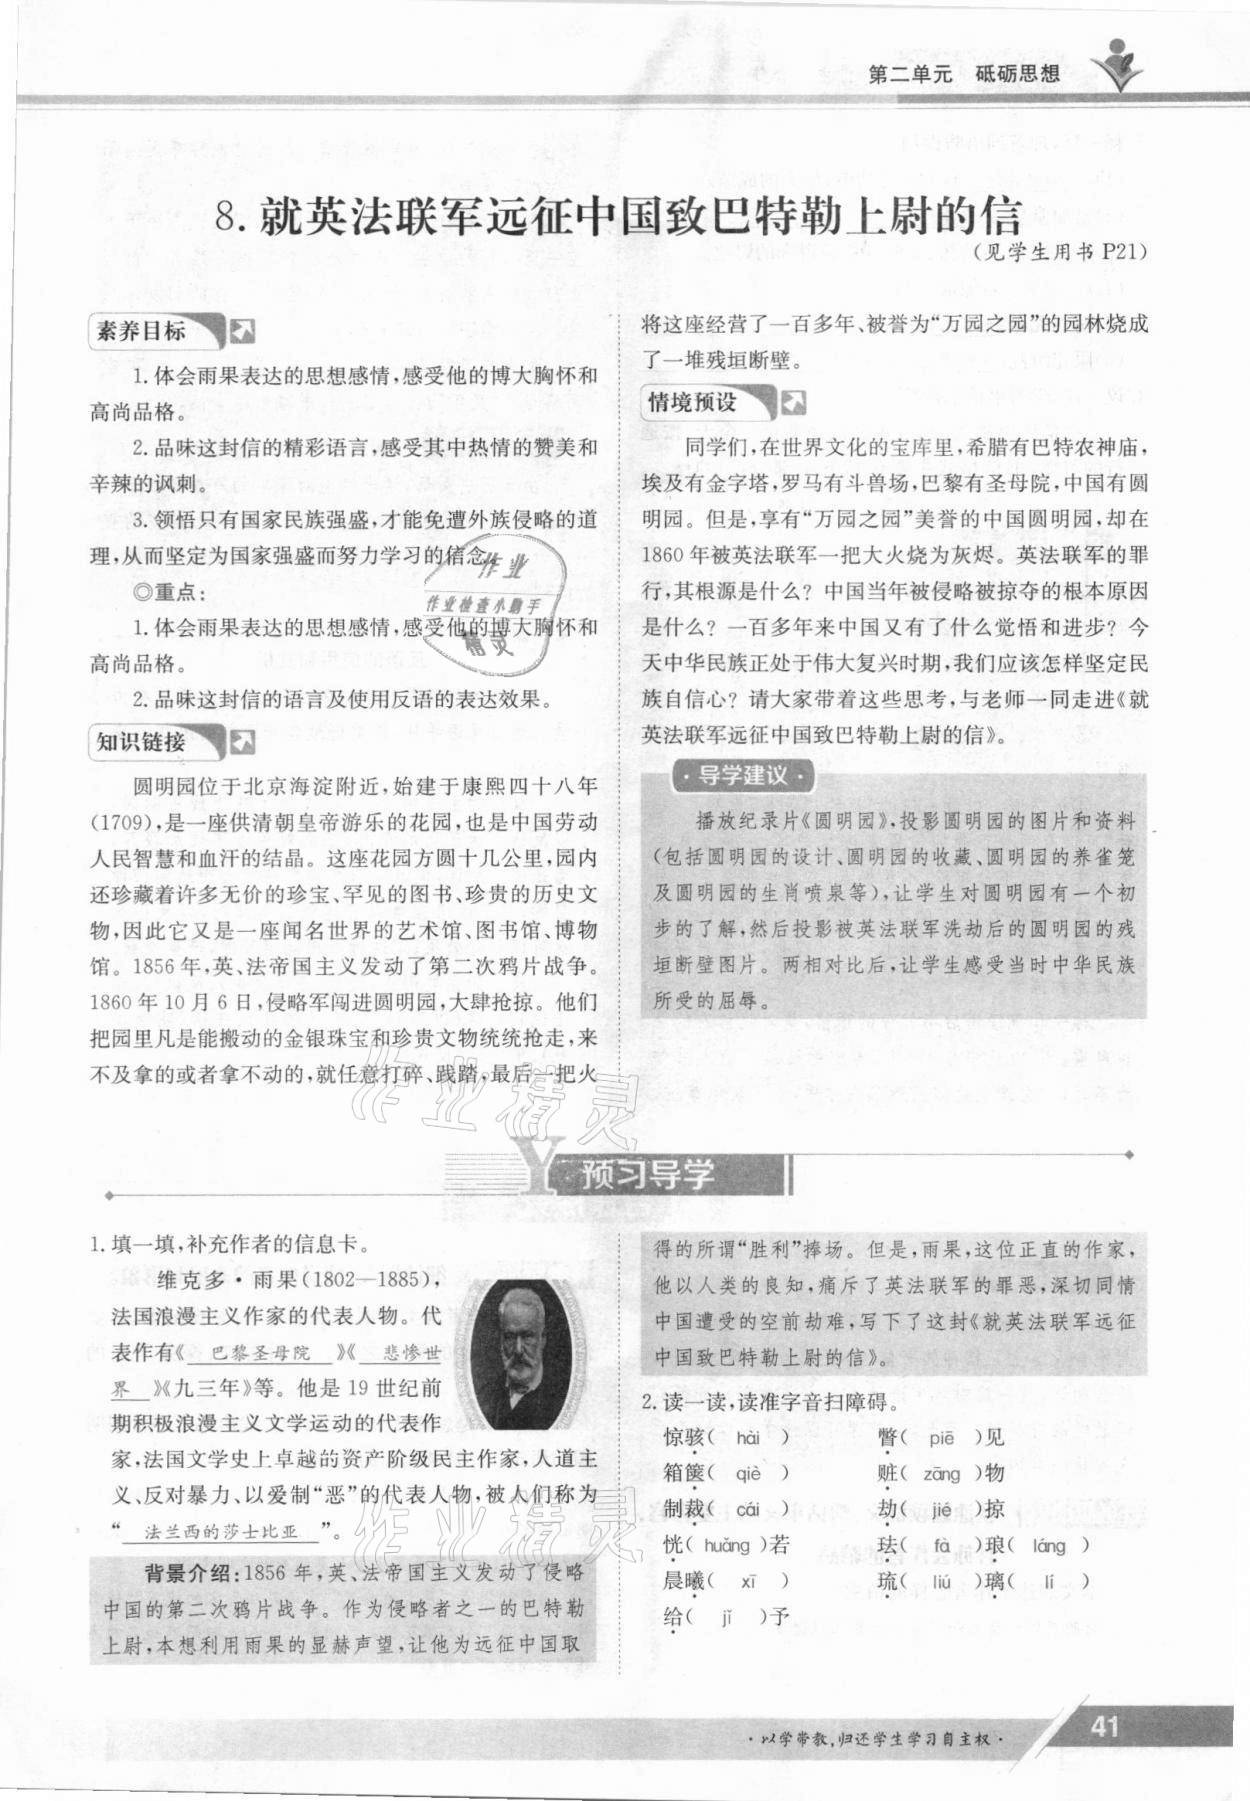 第二单元 砥砺思想
8. 就英法联军远征中国致巴特勒上尉的信
(见学生用书 P21)
素养目标
1. 体会雨果表达的思想感情,感受他的博大胸怀和
高尚品格。
2. 品味这封信的精彩语言,感受其中热情的赞美和
辛辣的讽刺。
3. 领悟只有国家民族强盛,才能免遭外族侵略的道
理,从而坚定为国家强盛而努力学习的信念。
◎重点:
1. 体会雨果表达的思想感情,感受他的博大胸怀和
高尚品格。
2. 品味这封信的语言及使用反语的表达效果。
知识链接
圆明园位于北京海淀附近,始建于康熙四十八年
(1709),是一座供清朝皇帝游乐的花园,也是中国劳动
人民智慧和血汗的结晶。这座花园方圆十几公里,园内
还珍藏着许多无价的珍宝、罕见的图书、珍贵的历史文
物,因此它又是一座闻名世界的艺术馆、图书馆、博物
馆。1856 年,英、法帝国主义发动了第二次鸦片战争。
1860 年 10 月 6 日,侵略军闯进圆明园,大肆抢掠。他们
把园里凡是能搬动的金银珠宝和珍贵文物统统抢走,来
不及拿的或者拿不动的,就任意打碎、践踏,最后一把火
将这座经营了一百多年、被誉为“万园之园”的园林烧成
了一堆残垣断壁。
情境预设
同学们,在世界文化的宝库里,希腊有巴特农神庙,
埃及有金字塔,罗马有斗兽场,巴黎有圣母院,中国有圆
明园。但是,享有“万园之园”美誉的中国圆明园,却在
1860 年被英法联军一把大火烧为灰烬。英法联军的罪
行,其根源是什么?中国当年被侵略被掠夺的根本原因
是什么?一百多年来中国又有了什么觉悟和进步?今
天中华民族正处于伟大复兴时期,我们应该怎样坚定民
族自信心?请大家带着这些思考,与老师一同走进《就
英法联军远征中国致巴特勒上尉的信》。
·导学建议·
播放纪录片《圆明园》,投影圆明园的图片和资料
(包括圆明园的设计、圆明园的收藏、圆明园的养雀笼
及圆明园的生肖喷泉等),让学生对圆明园有一个初
步的了解,然后投影被英法联军洗劫后的圆明园的残
垣断壁图片。两相对比后,让学生感受当时中华民族
所受的屈辱。
作业
作业检查小助手
精灵
作业精灵
Y 预习导学
1. 填一填,补充作者的信息卡。
维克多·雨果(1802—1885),
法国浪漫主义作家的代表人物。代
表作有《 巴黎圣母院 》《 悲惨世
界 》《九三年》等。他是 19 世纪前
期积极浪漫主义文学运动的代表作
家,法国文学史上卓越的资产阶级民主作家,人道主
义、反对暴力、以爱制“恶”的代表人物,被人们称为
“ 法兰西的莎士比亚 ”。
背景介绍:1856 年,英、法帝国主义发动了侵略
中国的第二次鸦片战争。作为侵略者之一的巴特勒
上尉,本想利用雨果的显赫声望,让他为远征中国取
得的所谓“胜利”捧场。但是,雨果,这位正直的作家,
他以人类的良知,痛斥了英法联军的罪恶,深切同情
中国遭受的空前劫难,写下了这封《就英法联军远征
中国致巴特勒上尉的信》。
2. 读一读,读准字音扫障碍。
惊骇( hài ) 瞥( piē )见
箱箧( qiè ) 赃( zāng )物
制裁( cái ) 劫( jié )掠
恍( huǎng )若 珐( fà )琅( láng )
晨曦( xī ) 琉( liú )璃( lí )
给( jǐ )予
作业精灵
·以学带教,归还学生学习自主权·
41